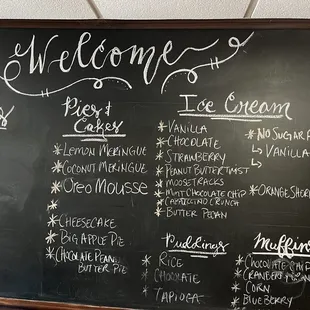 Welcome
Pies &
Cakes
* Lemon Meringue
* Coconut Meringue
* Oreo Mousse
*
* Cheesecake
* Big Apple Pie
* Chocolate Peanut
Butter Pie
Ice Cream
* Vanilla
* Chocolate
* Strawberry
* Peanut Butter Twist
* Moosetracks
* Mint Chocolate Chip
* Cappuccino Crunch
* Butter Pecan
* No Sugar
↳ Vanilla
↳
* Orange Sher
Puddings
* Rice
* Chocolate
* Tapioca
Muffins
* Chocolate Chip
* Cranberry
* Corn
* Blueberry